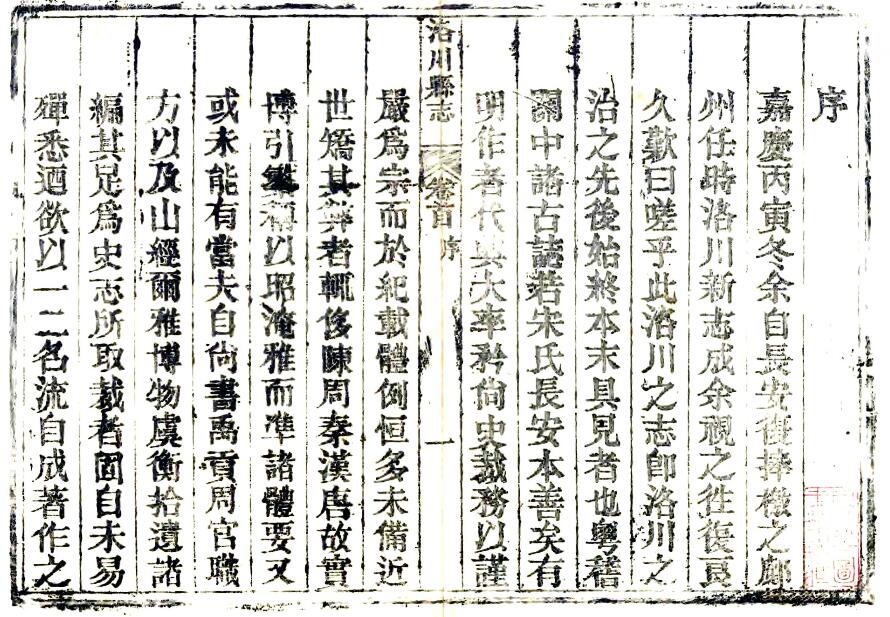 序
嘉慶丙寅冬余自長安復捧檄之鄜
州任時洛川新志成余視之徃復良
久歎曰嗟乎此洛川之志卽洛川之
治之先後始終本末具見者也粤稽
關中諸古誌若宋氏長安本善矣有
明作者代興大率矜尙史裁務以謹
洛川縣志
卷首
序
一
嚴爲宗而於紀載體例恒多未備近
世矯其弊者輒侈陳周秦漢唐故實
博引繁稱以昭淹雅而準諸體要又
或未能有當夫自尙書禹貢周官職
方以及山經爾雅博物虞衡拾遺諸
編其足爲史志所取裁者固自未易
殫悉迺欲以一二名流自成著作之